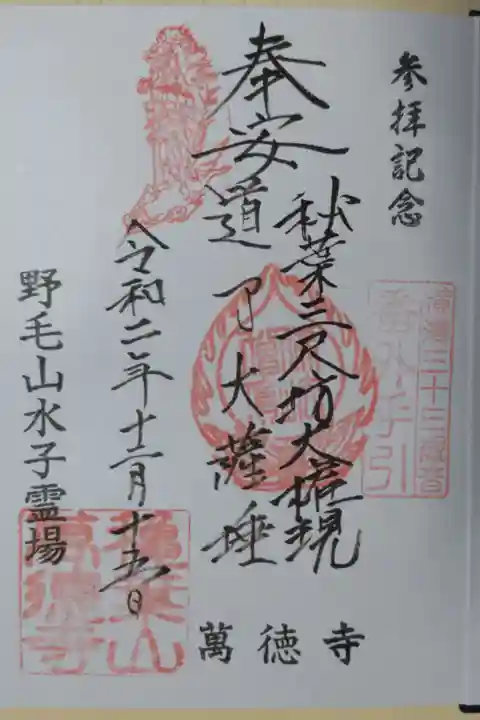 参拝記念
奉安
秋葉三尺坊大権現
道了大薩埵
令和二年十二月十五日
野毛山水子霊場
萬徳寺
三十三観音